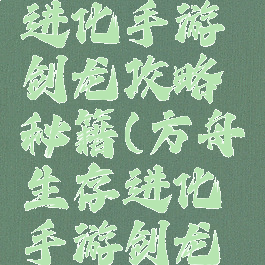 进化手游
创龙攻略
秘籍(方舟
生存进化
手游创龙